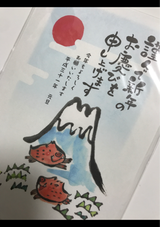 謹んで新年の
お慶びを
申し上げます
今年もよろしく
お願いいたします
平成三十一年 元旦